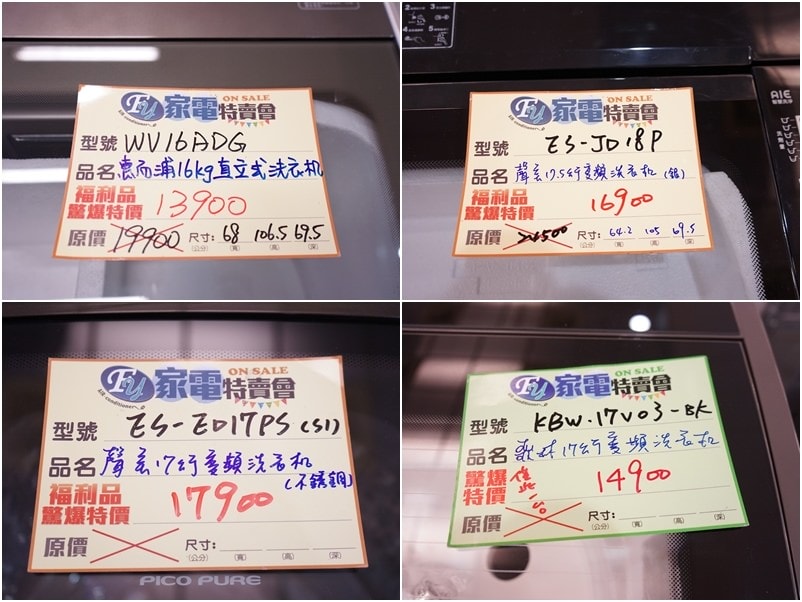 Fy 家電特賣會
ON SALE
air conditioner
型號 WV16ADG
品名 惠而浦16kg直立式洗衣机
福利品
驚爆特價 13900
原價 19900 尺寸: 68 106.5 69.5
(公分) (寬) (高) (深)
AIE
Fy 家電特賣會
ON SALE
型號 ES-JD18P
品名 聲宝17.5公斤變頻洗衣机(銀)
福利品
驚爆特價 16900
原價 尺寸: 64.2 105 69.5
(公分) (寬) (高) (深)
Fy 家電特賣會
ON SALE
air conditioner
型號 ES-ED17PS(S1)
品名 聲宝17公斤變頻洗衣机
(不銹鋼)
福利品
驚爆特價 17900
原價 尺寸:
(公分) (寬) (高) (深)
PICO PURE
Fy 家電特賣會
ON SALE
air conditioner
型號 KBW-17V03-BK
品名 歌林17公斤變頻洗衣机
驚爆
特價 僅此一台 14900
原價 尺寸:
(公分) (寬) (高) (深)